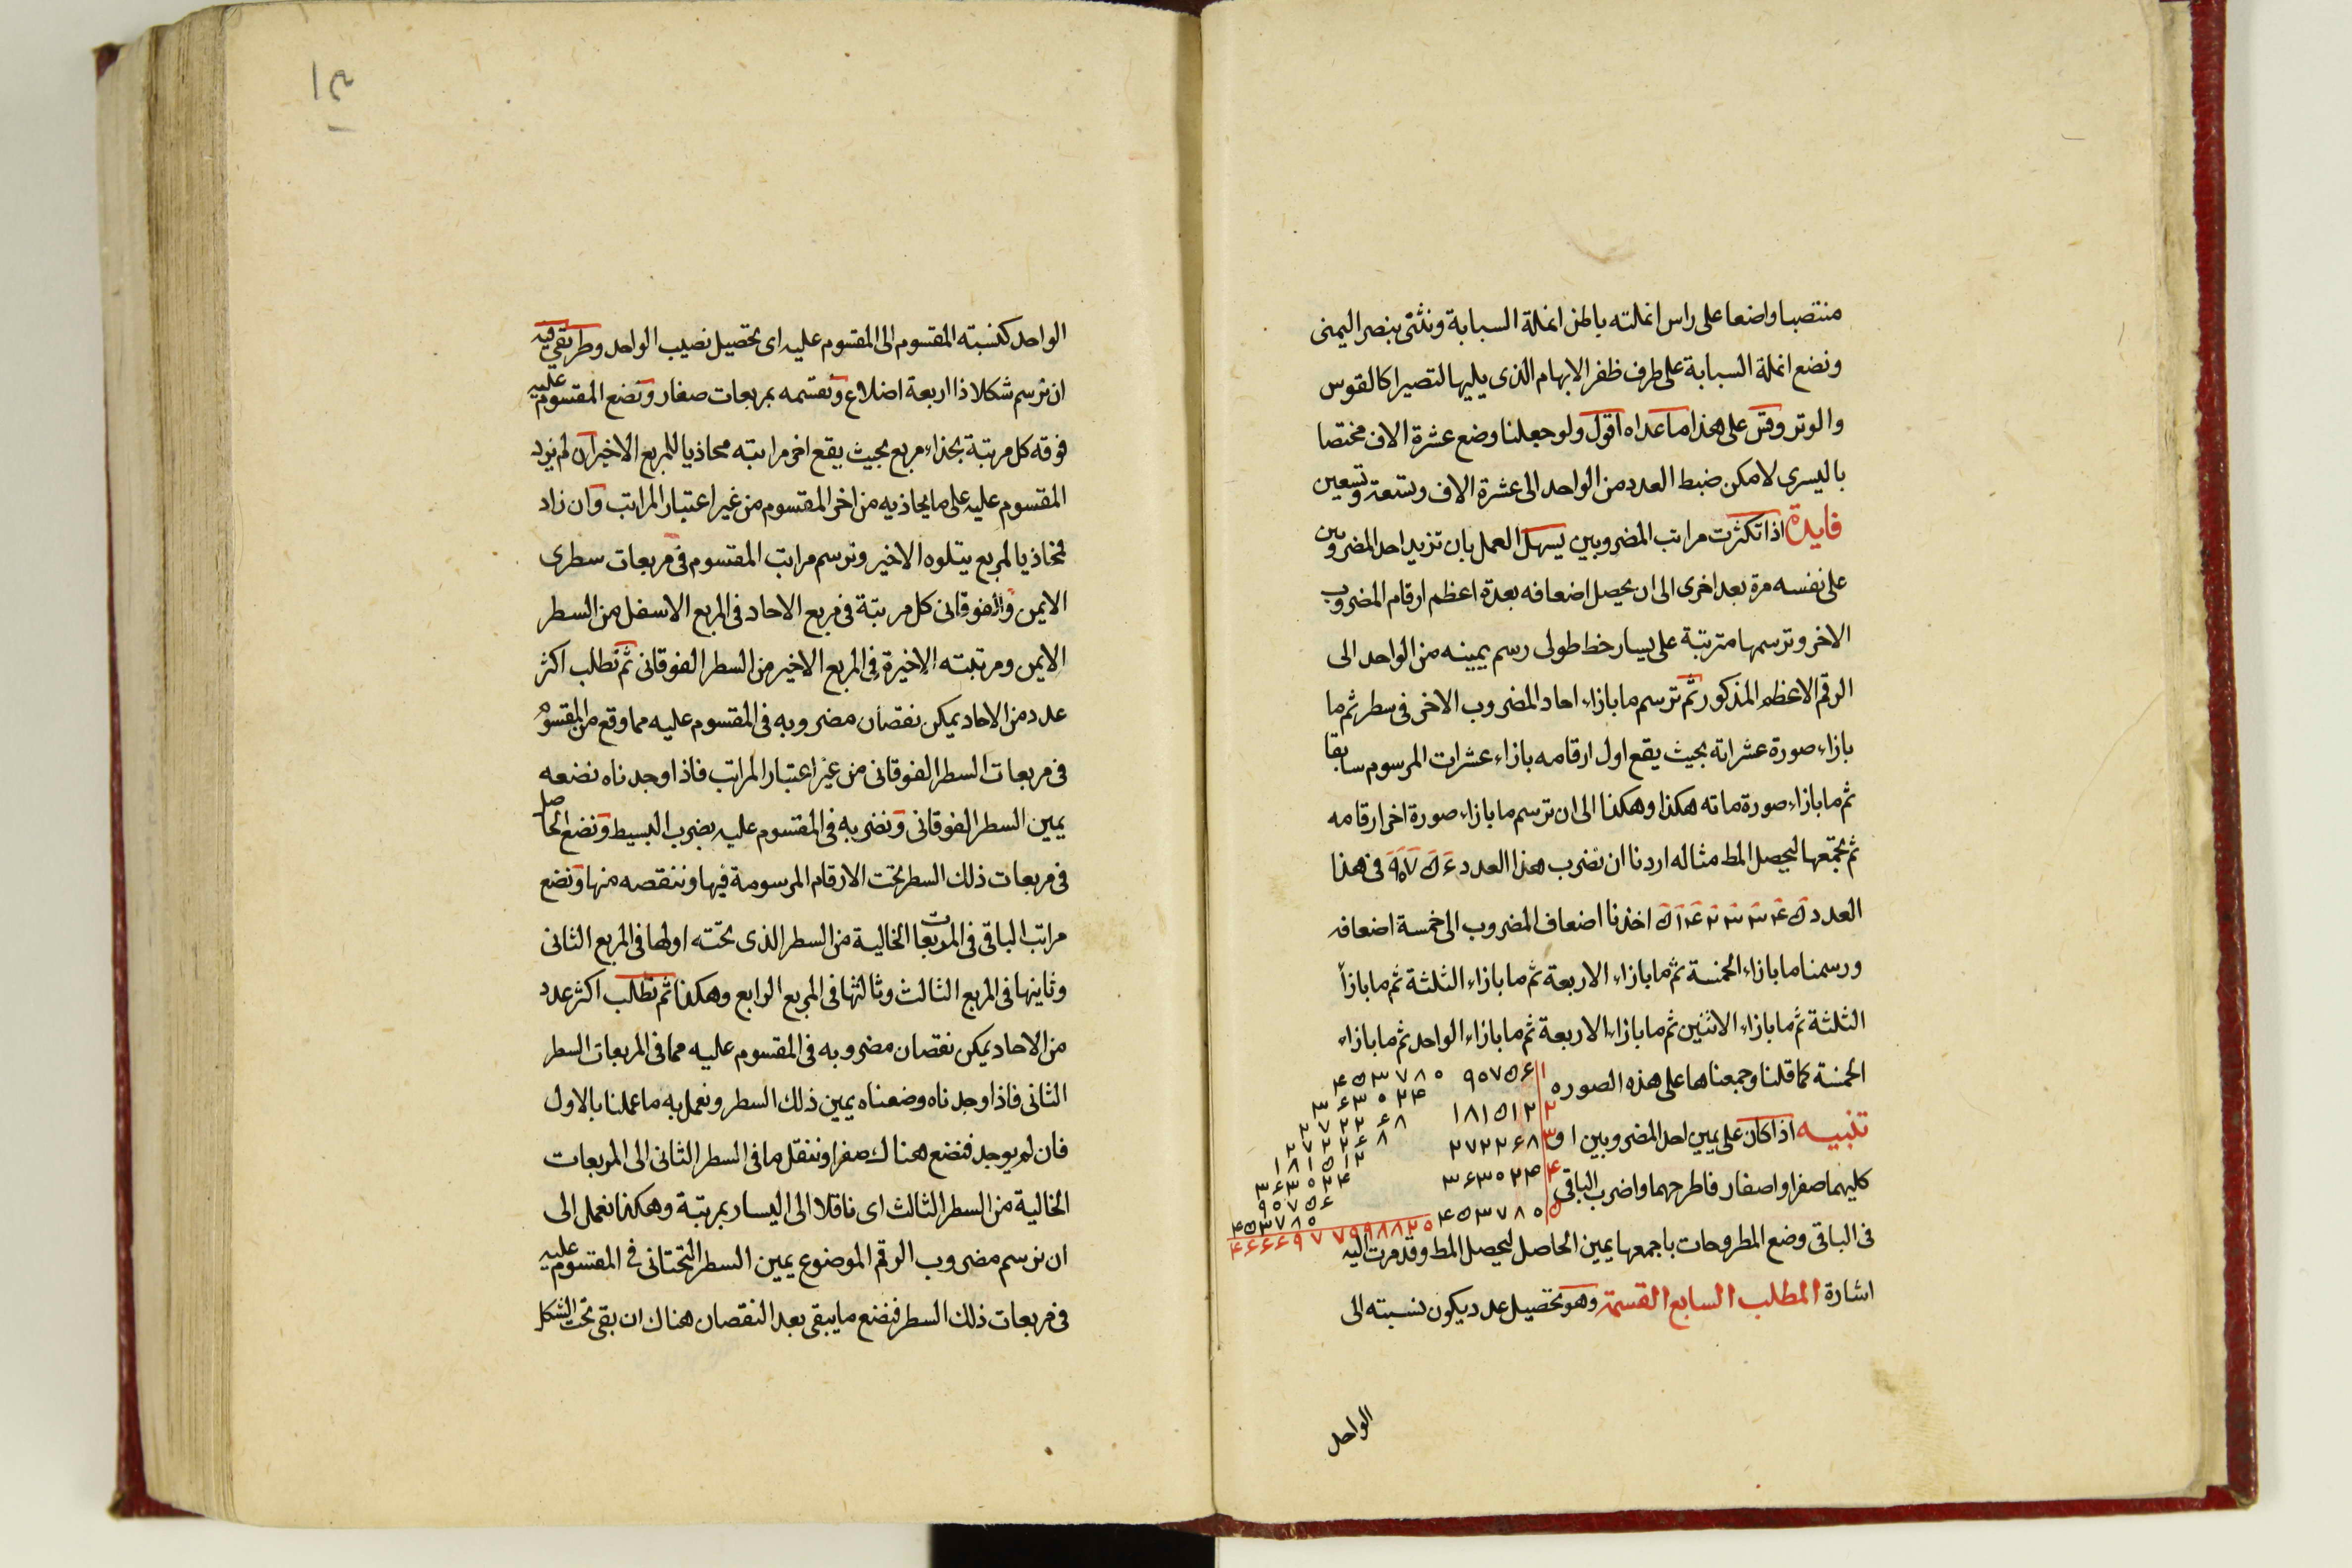 منتصبا واضعا على راس انملته باطن انملة السبابة ونثنى بنصر اليمنى
ونضع انملة السبابة على طرف ظفر الابهام الذى يليها لتصيرا كالقوس
والوتر وقس على هذا ما عداه اقول ولو جعلنا وضع عشرة الاف مختصا
باليسرى لامكن ضبط العدد من الواحد الى عشرة الاف وتسعة وتسعين
فايدة اذا تكثرت مراتب المضروبين يسهل العمل بان تزيد احد المضروبين
على نفسه مرة بعد اخرى الى ان يحصل اضعافه بعدة اعظم ارقام المضروب
الاخر وترسمها مترتبة على يسار خط طولى رسم يمينه من الواحد الى
الرقم الاعظم المذكور ثم ترسم ما بازاء احاد المضروب الاخر فى سطر ثم ما
بازاء صورة عشراته بحيث يقع اول ارقامه بازاء عشرات المرسوم سابقا
ثم ما بازاء صورة ماته هكذا وهكذا الى ان ترسم ما بازاء صورة اخر ارقامه
ثم تجمعها ليحصل المط مثاله اردنا ان نضرب هذا العدد ۹۰۷۵۶ فى هذا
العدد ۵۱۴۲۳۳۴۵ اخذنا اضعاف المضروب الى خمسة اضعافه
ورسمنا ما بازاء الخمسة ثم ما بازاء الاربعة ثم ما بازاء الثلثة ثم ما بازأ
الثلثة ثم ما بازاء الاثنين ثم ما بازاء الاربعة ثم ما بازاء الواحد ثم ما بازاء
الخمسة كما قلنا وجمعناها على هذه الصوره
۱ ۹۰۷۵۶
۲ ۱۸۱۵۱۲
۳ ۲۷۲۲۶۸
۴ ۳۶۳۰۲۴
۵ ۴۵۳۷۸۰
۴۵۳۷۸۰
۳۶۳۰۲۴
۲۷۲۲۶۸
۲۷۲۲۶۸
۱۸۱۵۱۲
۳۶۳۰۲۴
۹۰۷۵۶
۴۵۳۷۸۰
تنبيه اذا كان على يمين احد المضروبين او
كليهما صفر او اصفار فاطرحهما واضرب الباقى
فى الباقى وضع المطروحات باجمعها يمين الحاصل ليحصل المط وقد مرت اليه
اشارة المطلب السابع القسمة وهو تحصيل عدد يكون نسبته الى
الواحد
الواحد كنسبته المقسوم الى المقسوم عليه اى تحصيل نصيب الواحد وطريقى فيه
ان ترسم شكلا ذا اربعة اضلاع وتقسمه بمربعات صغار وتضع المقسوم عليه
فوقه كل مرتبة بحذاء مربع بحيث يقع اخر مراتبه محاذيا للمربع الاخير ان لم يزد
المقسوم عليه على ما يحاذيه من اخر المقسوم من غير اعتبار المراتب وان زاد
فمحاذيا لمربع يتلوه الاخير وترسم مراتب المقسوم فى مربعات سطرى
الايمن والفوقانى كل مرتبة فى مربع الاحاد فى المربع الاسفل من السطر
الايمن ومرتبته الاخيرة فى المربع الاخير من السطر الفوقانى ثم تطلب اكثر
عدد من الاحاد يمكن نقصان مضروبه فى المقسوم عليه مما وقع من المقسوم
فى مربعات السطر الفوقانى من غير اعتبار المراتب فاذا وجدناه نضعه
يمين السطر الفوقانى ونضربه فى المقسوم عليه بضرب البسيط ونضع الحاصل
فى مربعات ذلك السطر تحت الارقام المرسومة فيها وننقصه منها ونضع
مراتب الباقى فى المربعات الخالية من السطر الذى تحته اولها فى المربع الثانى
وثانيها فى المربع الثالث وثالثها فى المربع الرابع وهكذا ثم نطلب اكثر عدد
من الاحاد يمكن نقصان مضروبه فى المقسوم عليه مما فى المربعات السطر
الثانى فاذا وجدناه وضعناه يمين ذلك السطر ونعمل به ما عملنا بالاول
فان لم يوجد فنضع هناك صفرا وننقل ما فى السطر الثانى الى المربعات
الخالية من السطر الثالث اى ناقلا الى اليسار بمرتبة وهكذا نعمل الى
ان نرسم مضروب الرقم الموضوع يمين السطر التحتانى فى المقسوم عليه
فى مربعات ذلك السطر فنضع ما يبقى بعد النقصان هناك ان بقى تحت الشكل